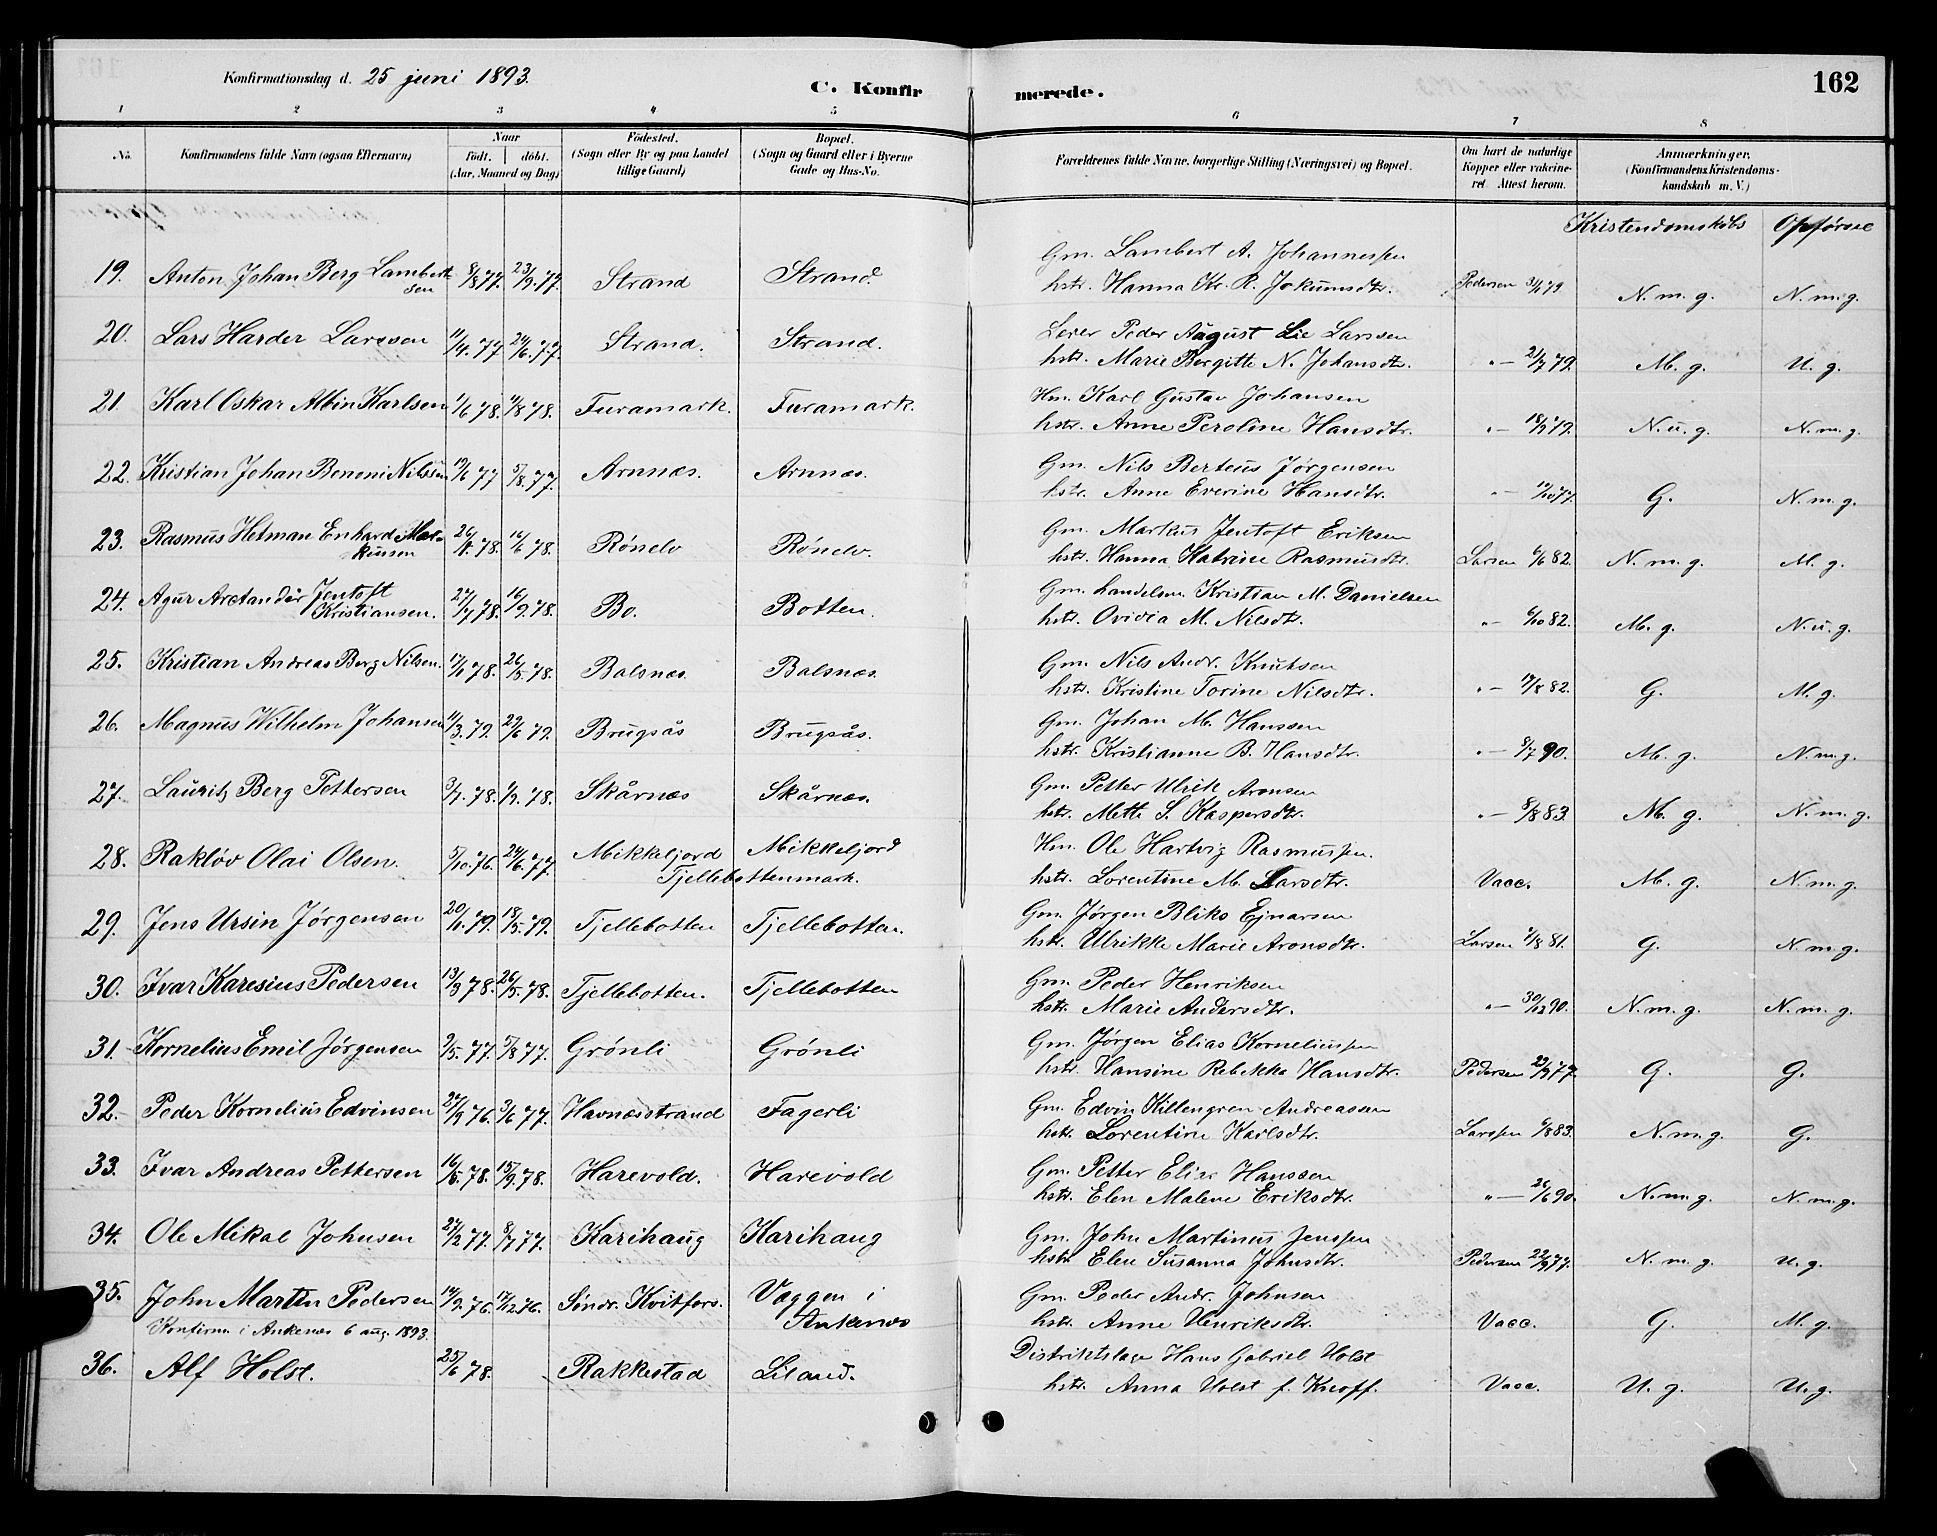 Konfirmationsdag d. 25 juni 1893.
C. Konfirmerede.
162
1 2 3 4 5 6 7 8
No. Konfirmandens fulde Navn (ogsaa Efternavn) Naar födt. döbt. (Aar, Maaned og Dag) Födested. (Sogn eller By og paa Landet tillige Gaard) Bopæl. (Sogn og Gaard eller i Byerne Gade og Hus-No. Forældrenes fulde Navne, borgerlige Stilling (Næringsvei) og Bopæl. Om havt de naturlige Kopper eller vakcineret. Attest herom. Anmærkninger. (Konfirmandens Kristendomskundskab m. V.)
Kristendomskdbs Opførsel
19. Anton Johan Berg Lambertsen 8/8 77. 23/9 77. Strand Strand. Gm. Lambert A. Johannessen
hstr. Hanna Kr. R. Jokumsdtr. Pedersen 79 N. m. g. N. m. g.
20. Lars Harder Larssen 11/4. 77. 24/6. 77. Strand. Strand. Leier Peder August Lie Larssen
hstr. Marie Bergitte N. Johansdtr. " — 21/7 79. M. g. U. g.
21. Karl Oskar Albin Karlsen 1/6 78. 11/8 78. Furamark. Furamark. Hm. Karl Gustav Johansen
hstr. Anne Peroline Hansdtr. " — 79. N. u. g. N. m. g.
22. Kristian Johan Benoni Nilssen 19/6 77 5/8. 77. Arnnæs. Arnnæs. Gm. Nils Berteus Jørgensen
hstr. Anne Everine Hansdtr. " — 77. G. N. m. g.
23. Rasmus Hetman Enhard Markussen 26/4. 78. 16/6 78. Rönelv Rönelv. Gm. Markus Jentoft Eriksen
hstr. Hanna Katrine Rasmusdtr. Larsen 6/6 82. N. m. g. M. g.
24. Agur Arctander Jentoft Kristiansen. 27/7 78. 16/9. 78. Bo. Botten. Gm. handelsm. Kristian M. Danielsen
hstr. Ovidia M. Nilsdtr. " — 6/10 82. M. g. N. u. g.
25. Kristian Andreas Berg Nilsen. 17/1 78. 26/5. 78. Balsnæs. Balsnæs. Gm. Nils Andr. Knutsen
hstr. Kristine Torine Nilsdtr. " — 17/8 82. G. M. g.
26. Magnus Wilhelm Johansen 11/3. 79. 29/6 79. Brugsås Brugsås. Gm. Johan M. Hanssen
hstr. Kristianne B. Hansdtr. " — 8/7 90. M. g. N. m. g.
27. Lauritz Berg Pettersen 3/7. 78. 78. Skårnæs Skårnæs. Gm. Petter Ulrik Aronsen
hstr. Mette S. Kaspersdtr. " — 8/8 83. M. g. N. m. g.
28. Rakløv Olai Olsen. 5/10. 76. 24/6. 77. Mikkeljord Mikkeljord Hm. Ole Hartvig Rasmussen.
Tjellebottenmark. hstr. Lorentine M. Larsdtr. Vacc. M. g. N. m. g.
29. Jens Ursin Jørgensen 20/1. 79. 18/5. 79. Tjellebotten Tjellebotten. Gm. Jørgen Bliks Ejnarsen
hstr. Ulrikke Marie Aronsdtr. Larsen 81. G. N. m. g.
30. Ivar Karesius Pedersen 13/3 78. 26/5. 78. Tjellebotten. Tjellebotten Gm. Peder Henriksen
hstr. Marie Andersdtr. " — 90. N. m. g. N. m. g.
31. Kornelius Emil Jörgensen 9/5. 77. 5/8 77. Grönli Grönli Gm. Jørgen Elias Korneliussen
hstr. Hansine Rebekka Hansdtr. Pedersen 77. G. G.
32. Peder Kornelius Edvinsen 27/9 76. 3/6 77. Havnæsstrand Fagerli Gm. Edvin Killengren Andreassen
hstr. Lorentine Karlsdtr. Larssen 6/8 83. N. m. g. G.
33. Ivar Andreas Pettersen 16/5. 78. 15/9. 78. Harevold. Harevold Gm. Petter Elias Hanssen
hstr. Elen Malene Eriksdtr. " — 26/6 90. N. m. g. N. m. g.
34. Ole Mikal Johnsen 27/2 77. 8/7 77. Karihaug Karihaug Gm. John Martinus Jenssen
hstr. Elen Susanna Johnsdtr. Pedersen 77. N. m. g. U. g.
35. John Martin Pedersen 14/9. 76. 17/12 76. Söndr. Kvitfors. Vaggen i Ankenes Gm. Peder Andr. Johnsen
Konfirm. i Ankenæs 6 aug. 1893. hstr. Anne Henriksdtr. Vacc. G. M. g.
36. Alf Holst. 25/6 78. Rakkestad Liland. Distriktslæge Hans Gabriel Holst
hstr. Anna Holst f. Knoff. Vacc. U. g. U. g.